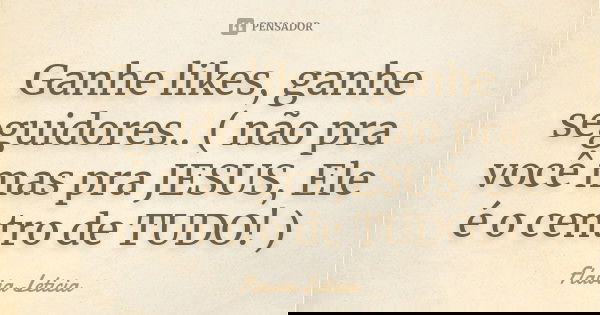 PENSADOR
Ganhe likes, ganhe
seguidores.. ( não pra
você mas pra JESUS, Ele
é o centro de TUDO! )
Flavia Leticia